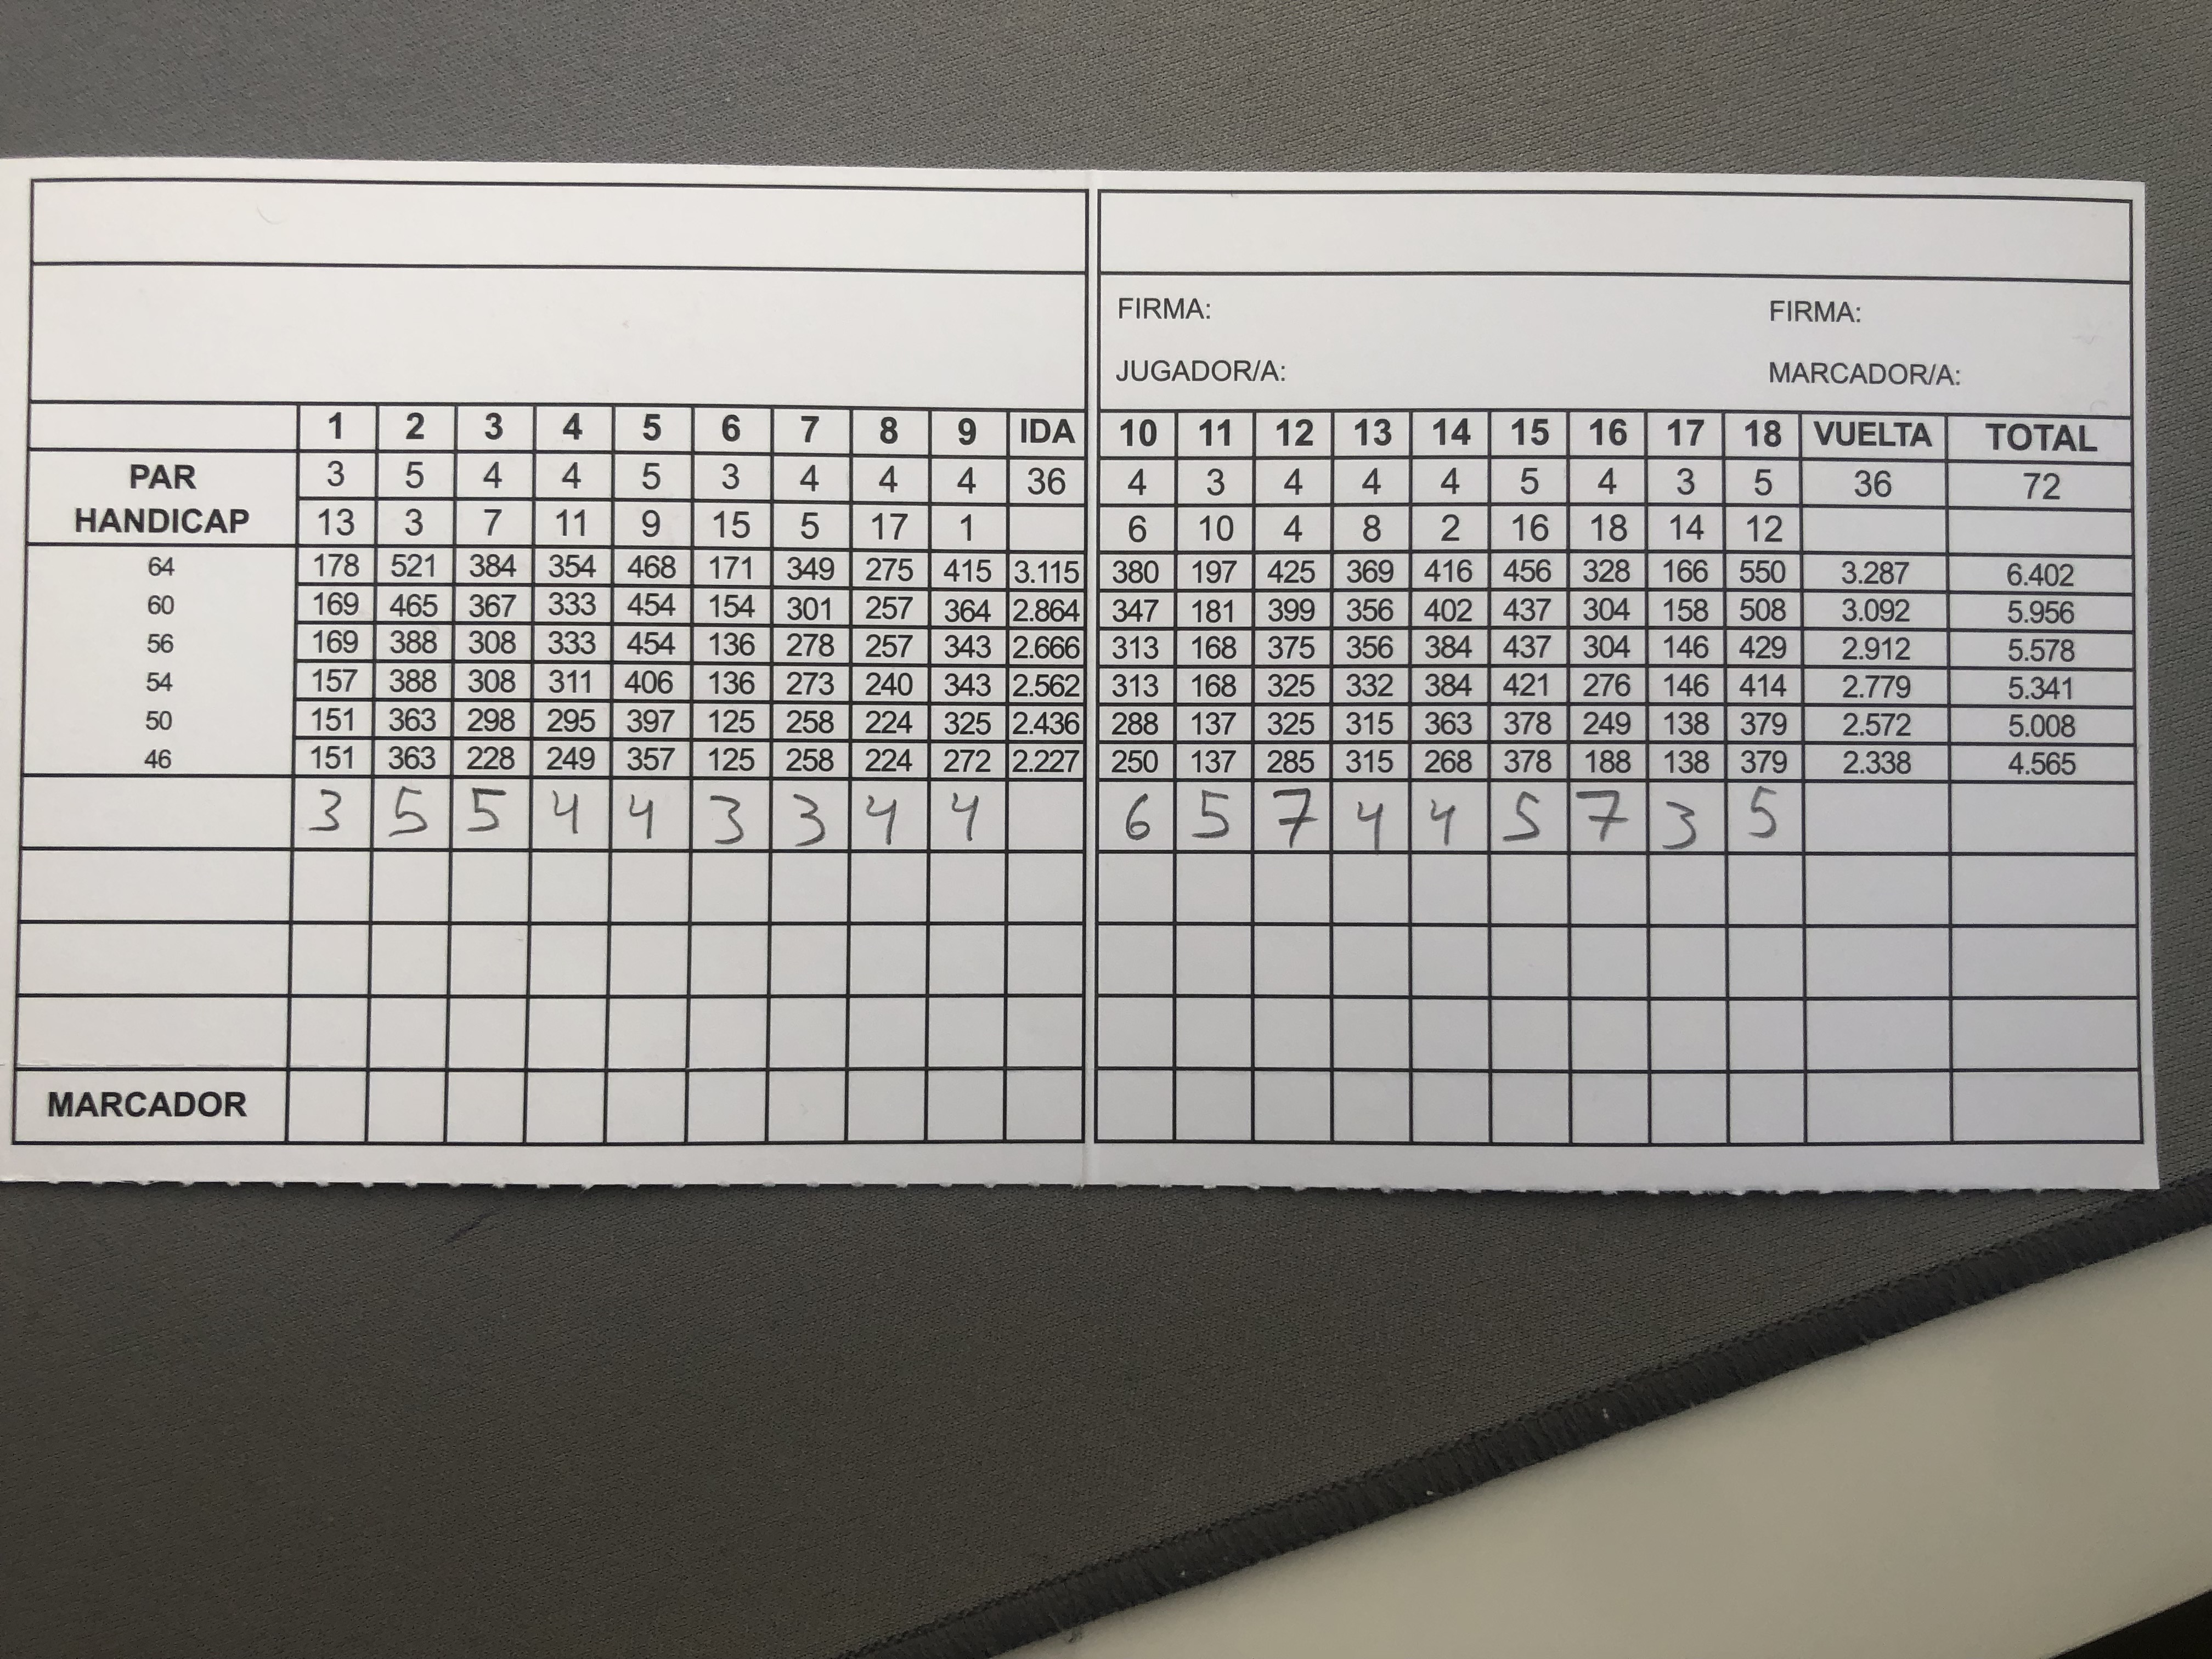 FIRMA: FIRMA:
JUGADOR/A: MARCADOR/A:
1 2 3 4 5 6 7 8 9 IDA 10 11 12 13 14 15 16 17 18 VUELTA TOTAL
PAR 3 5 4 4 5 3 4 4 4 36 4 3 4 4 4 5 4 3 5 36 72
HANDICAP 13 3 7 11 9 15 5 17 1 6 10 4 8 2 16 18 14 12
64 178 521 384 354 468 171 349 275 415 3.115 380 197 425 369 416 456 328 166 550 3.287 6.402
60 169 465 367 333 454 154 301 257 364 2.864 347 181 399 356 402 437 304 158 508 3.092 5.956
56 169 388 308 333 454 136 278 257 343 2.666 313 168 375 356 384 437 304 146 429 2.912 5.578
54 157 388 308 311 406 136 273 240 343 2.562 313 168 325 332 384 421 276 146 414 2.779 5.341
50 151 363 298 295 397 125 258 224 325 2.436 288 137 325 315 363 378 249 138 379 2.572 5.008
46 151 363 228 249 357 125 258 224 272 2.227 250 137 285 315 268 378 188 138 379 2.338 4.565
3 5 5 4 4 3 3 4 4 6 5 7 4 4 5 7 3 5
MARCADOR